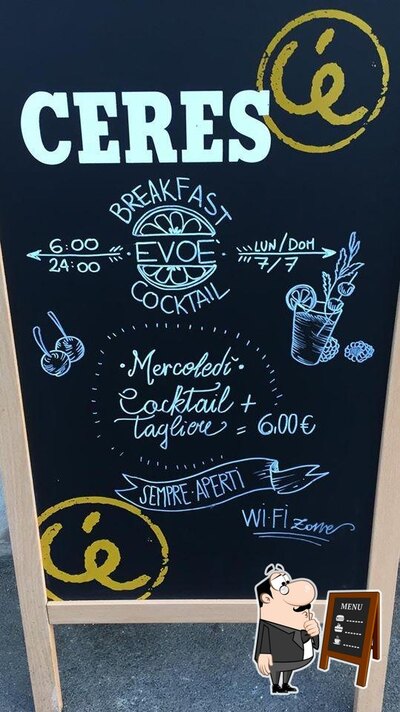 C'è
CERES
BREAKFAST
EVOÈ
COCKTAIL
6:00
24:00
LUN/DOM
7/7
·Mercoledì·
Cocktail +
Tagliere = 6,00€
SEMPRE·APERTI
WI·FI Zone
C'è
MENU